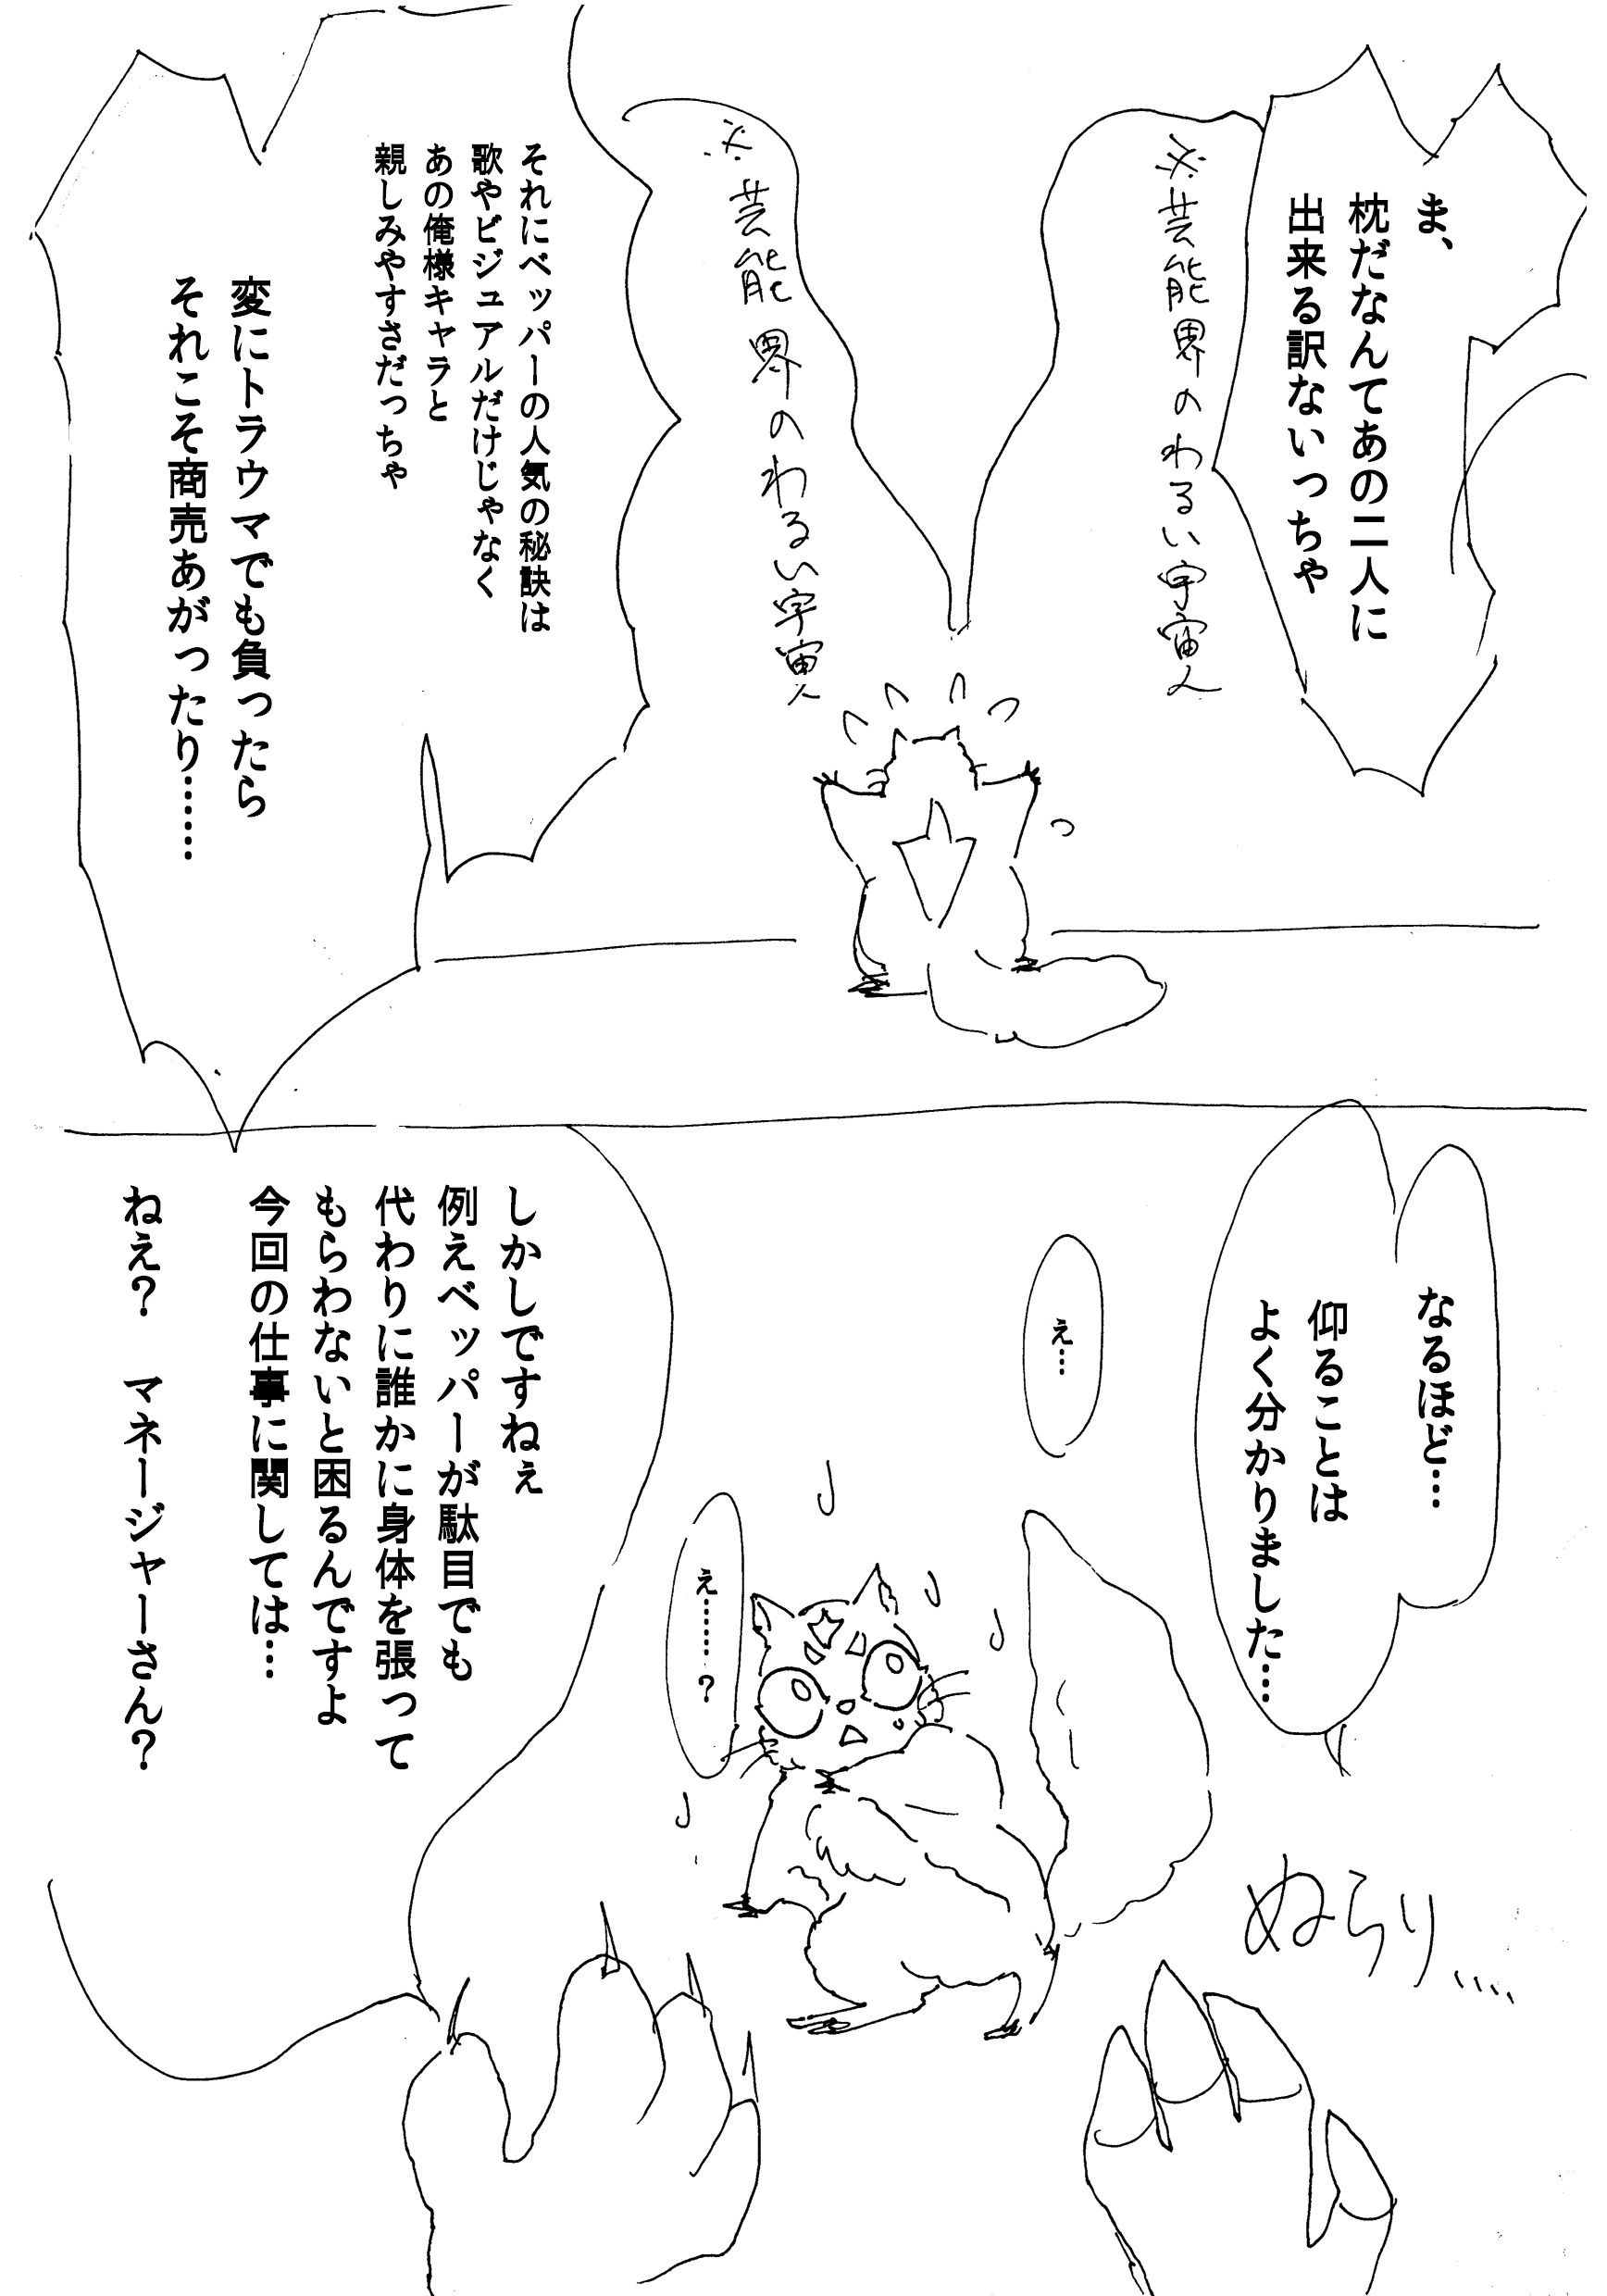 ま、
枕だなんてあの二人に
出来る訳ないっちゃ
※芸能界のわるい宇宙人
※芸能界のわるい宇宙人
それにペッパーの人気の秘訣は
歌やビジュアルだけじゃなく
あの俺様キャラと
親しみやすさだっちゃ
変にトラウマでも負ったら
それこそ商売あがったり……
なるほど…
仰ることは
よく分かりました…
え…
え……?
ぬらり…
しかしですねぇ
例えペッパーが駄目でも
代わりに誰かに身体を張って
もらわないと困るんですよ
今回の仕事に関しては…
ねえ? マネージャーさん?